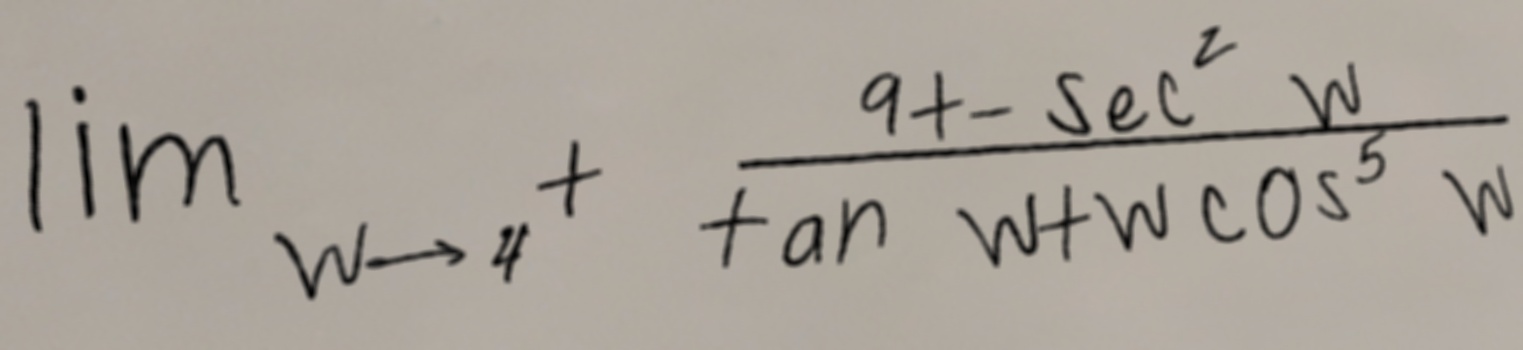 lim w→4⁺ 9+- sec² w
tan w+w cos⁵ w